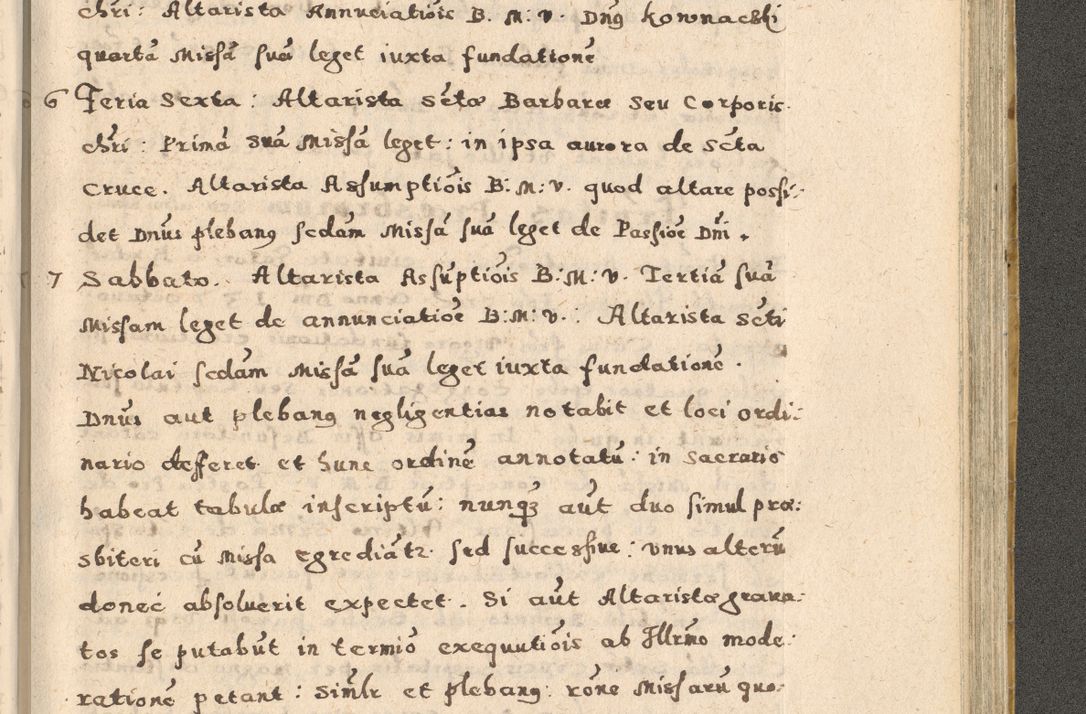 chri: Altarista Annuciatiõis B. M: V. Dñq Kownacski
quartã Missã suã leget iuxta fundationẽ
6 Feria Sexta: Altarista Sctæ Barbaræ seu Corporis
chri: Primã suã Missã leget: in ipsa aurora de Scta
Cruce. Altarista Assumptiõis B: M: V. quod altare possi-
det Dnũs plebanq scdam Missã suã leget de Passiõe Dñi.
7 Sabbato. Altarista Assũptiõis B: M: V. Tertiã suã
Missam leget de annunciatiõe B: M: V.: Altarista Scti
Nicolai scdam Missã suã leget iuxta fundationẽ.
Dnũs aut plebanq negligentias notabit et loci ordi-
nario defferet et hunc ordinẽ annotatũ: in Sacrario
habeat tabulæ inscriptũ: nunqz aũt duo simul præ:
sbiteri cũ Missa egrediãtr sed successiue: vnus alterũ
donec absoluerit expectet. Si aũt Altaristæ graua:
tos se putabũt in termiõ exequutiõis ab Illrmo mode:
rationẽ petant: Simlr et plebanq: rõne Missarũ quo-